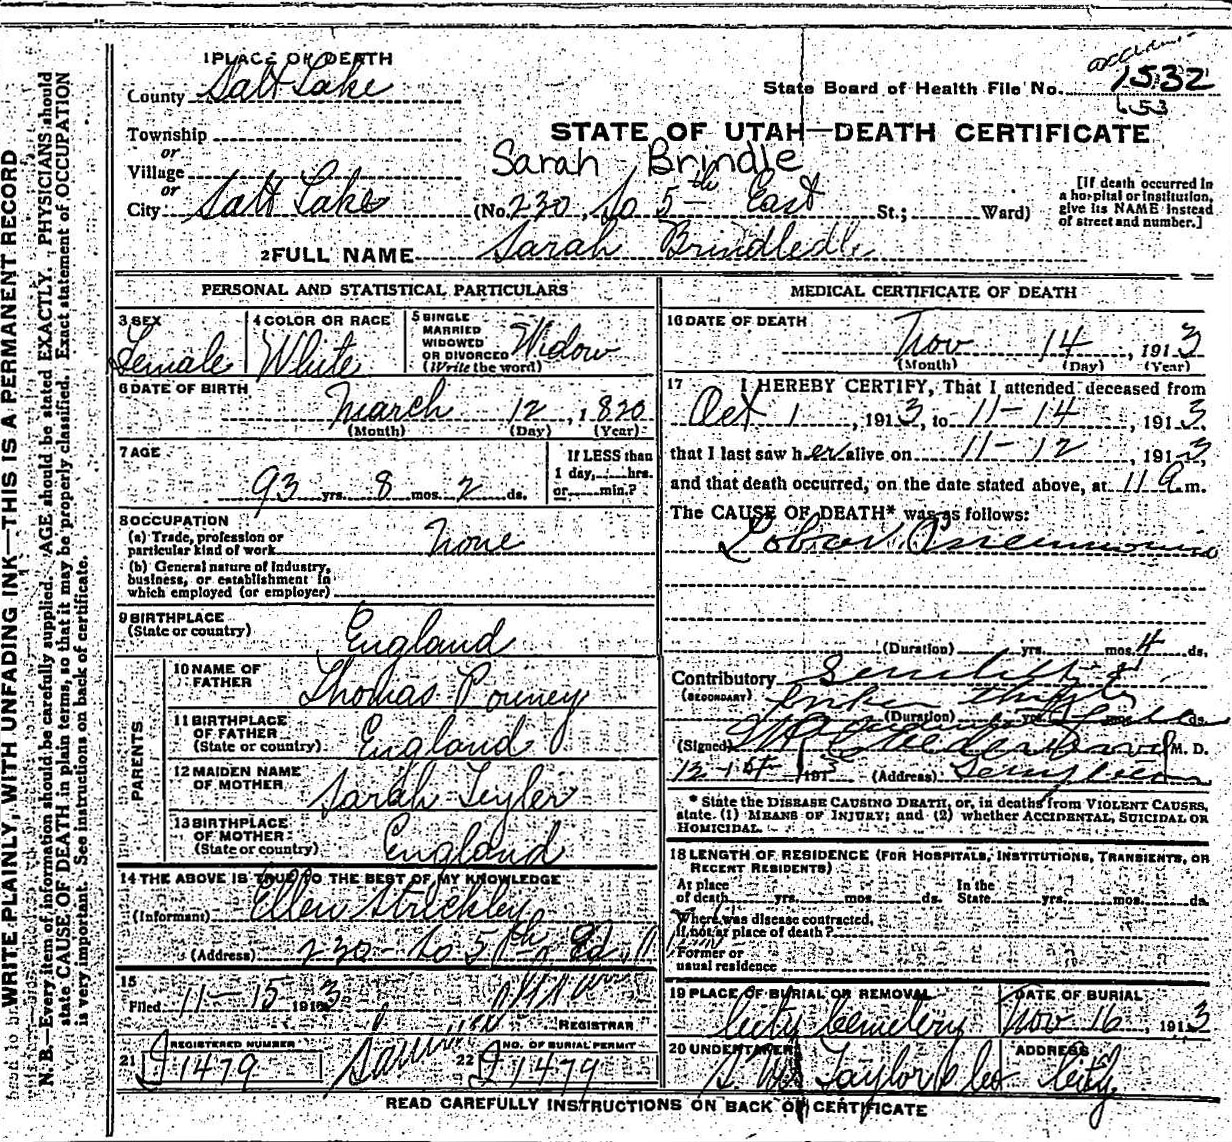 WRITE PLAINLY, WITH UNFADING INK—THIS IS A PERMANENT RECORD
N. B.—Every item of information should be carefully supplied. AGE should be stated EXACTLY. PHYSICIANS should
state CAUSE OF DEATH in plain terms, so that it may be properly classified. Exact statement of OCCUPATION
is very important. See instructions on back of certificate.
1 PLACE OF DEATH
County Salt Lake
State Board of Health File No. 1532
653
Township
or
Village
or
City Salt Lake
STATE OF UTAH—DEATH CERTIFICATE
Sarah Brindle
(No. 230 So 5th East St.; Ward)
[If death occurred in
a hospital or institution,
give its NAME instead
of street and number.]
2 FULL NAME Sarah Brindledle
PERSONAL AND STATISTICAL PARTICULARS
3 SEX Female
4 COLOR OR RACE White
5 SINGLE
MARRIED
WIDOWED
OR DIVORCED
(Write the word) Widow
6 DATE OF BIRTH
March 12, 1820
(Month) (Day) (Year)
7 AGE
93 yrs. 8 mos. 2 ds.
If LESS than
1 day, hrs.
or min.?
8 OCCUPATION
(a) Trade, profession or
particular kind of work None
(b) General nature of Industry,
business, or establishment in
which employed (or employer)
9 BIRTHPLACE
(State or country) England
PARENTS
10 NAME OF
FATHER Thomas
11 BIRTHPLACE
OF FATHER
(State or country) England
12 MAIDEN NAME
OF MOTHER Sarah
13 BIRTHPLACE
OF MOTHER
(State or country) England
14 THE ABOVE IS TRUE TO THE BEST OF MY KNOWLEDGE
(Informant) Ellen Strickley
(Address) 230 - So 5th
15
Filed 11-15 1913
REGISTRAR
21 REGISTERED NUMBER
1479
22 NO. OF BURIAL PERMIT
1479
MEDICAL CERTIFICATE OF DEATH
16 DATE OF DEATH
Nov 14, 1913
(Month) (Day) (Year)
17 I HEREBY CERTIFY, That I attended deceased from
Oct 1, 1913, to 11-14, 1913
that I last saw her alive on 11-12, 1913,
and that death occurred, on the date stated above, at 11 a m.
The CAUSE OF DEATH* was as follows:
Lobar Pneumonia
(Duration) yrs. mos. 4 ds.
Contributory Senility &
(SECONDARY) broken
(Duration) yrs. mos. ds.
(Signed) M. D.
191 (Address)
* State the DISEASE CAUSING DEATH, or, in deaths from VIOLENT CAUSES,
state (1) MEANS OF INJURY; and (2) whether ACCIDENTAL, SUICIDAL OR
HOMICIDAL.
18 LENGTH OF RESIDENCE (FOR HOSPITALS, INSTITUTIONS, TRANSIENTS, OR
RECENT RESIDENTS)
At place
of death yrs. mos. ds.
In the
State yrs. mos. ds.
Where was disease contracted,
if not at place of death?
Former or
usual residence
19 PLACE OF BURIAL OR REMOVAL
City Cemetery
DATE OF BURIAL
Nov 16, 1913
20 UNDERTAKER
S. M. Taylor & Co
ADDRESS
City
READ CAREFULLY INSTRUCTIONS ON BACK OF CERTIFICATE